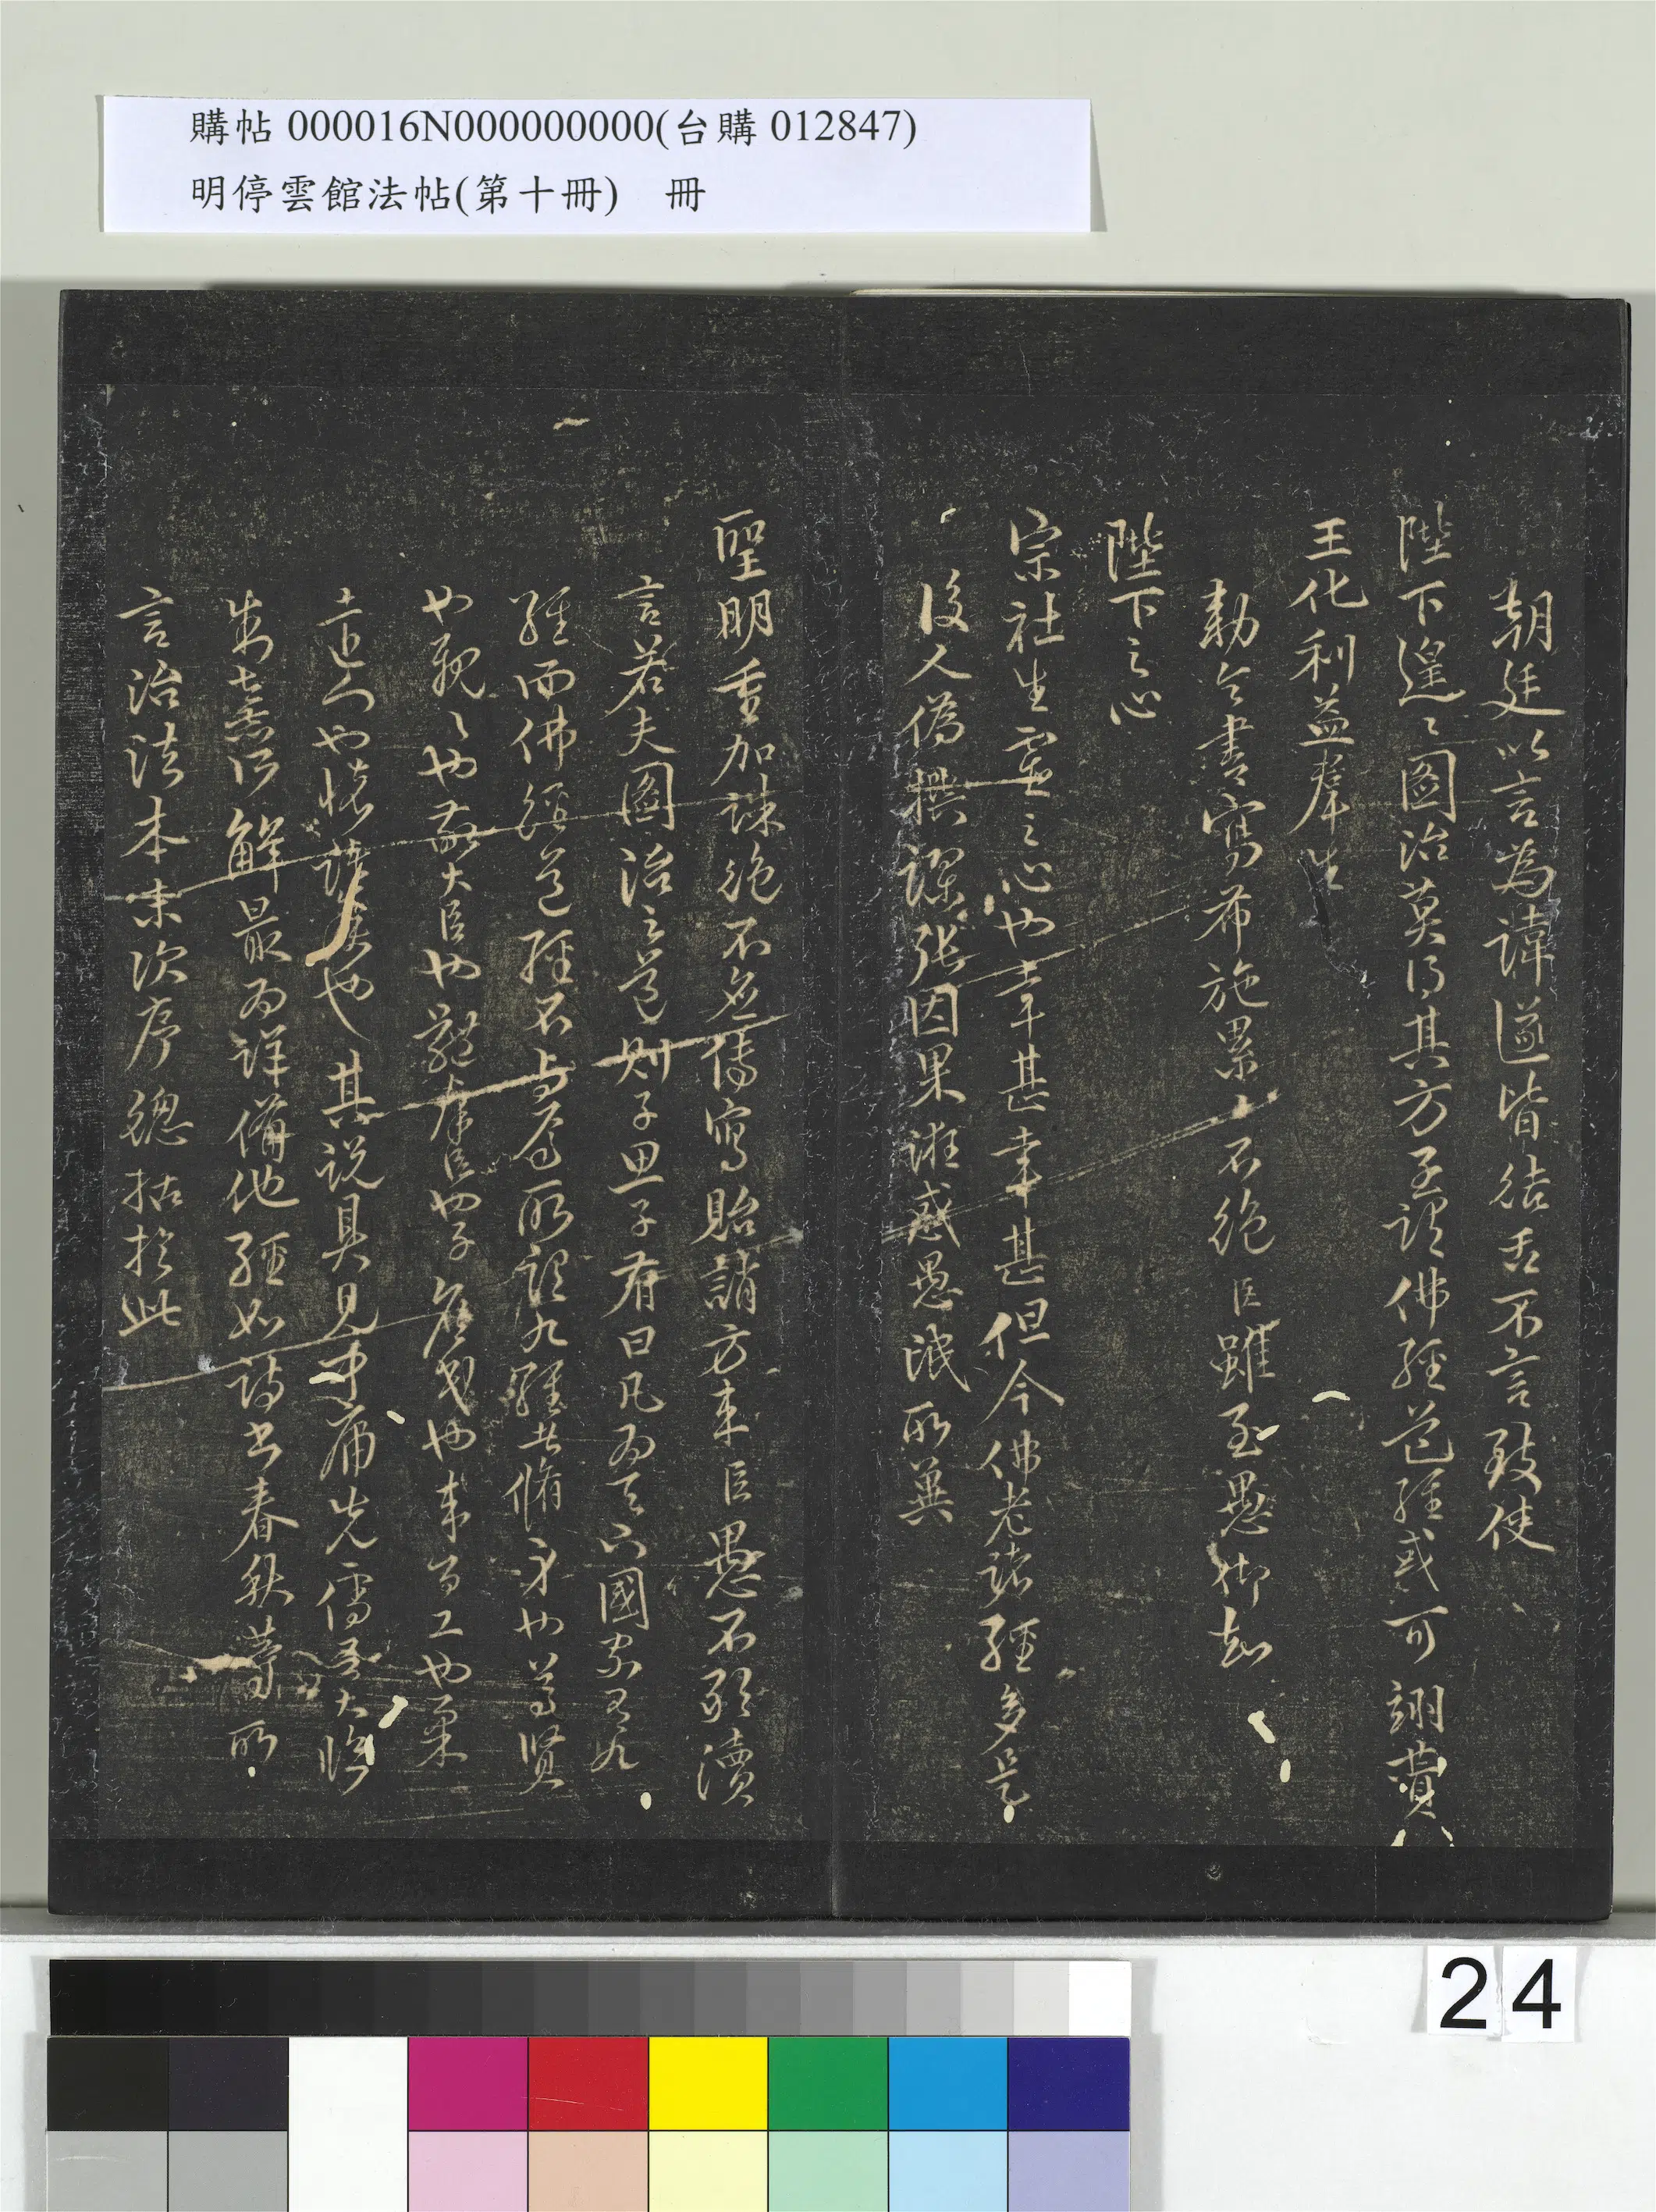 購帖 000016N000000000(台購 012847)
明停雲館法帖(第十冊) 冊
朝廷以言為諱遂皆結舌不言致使
陛下遑々圖治莫得其方至謂佛經道經或可翊贊
王化利益羣生
勅令書寫布施累而不絕臣雖至愚仰知
陛下之心
宗社生靈之心也幸甚幸甚但今佛老諸經多是
後人偽撰謬張因果誑惑愚氓所冀
聖明重加誅絕不宜傳寫貽誚方來臣愚不敢瀆
言若夫圖治之道則子思子有曰凡為天下國家有九
經而佛經道經不與焉所謂九經者脩身也尊賢
也親々也敬大臣也體羣臣也子庶民也来百工也柔
遠人也懷諸侯也其說具見中庸先儒朱大晦
朱熹所解最為詳備他經如詩書春秋等所
言治法本末次序總括於此
24